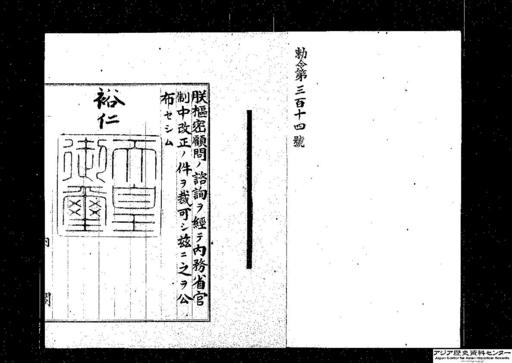 勅令第三百十四號
朕樞密顧問ノ諮詢ヲ經テ内務省官
制中改正ノ件ヲ裁可シ茲ニ之ヲ公
布セシム
裕仁
天皇
御璽
内閣
アジア歴史資料センター
Japan Center for Asian Historical Records